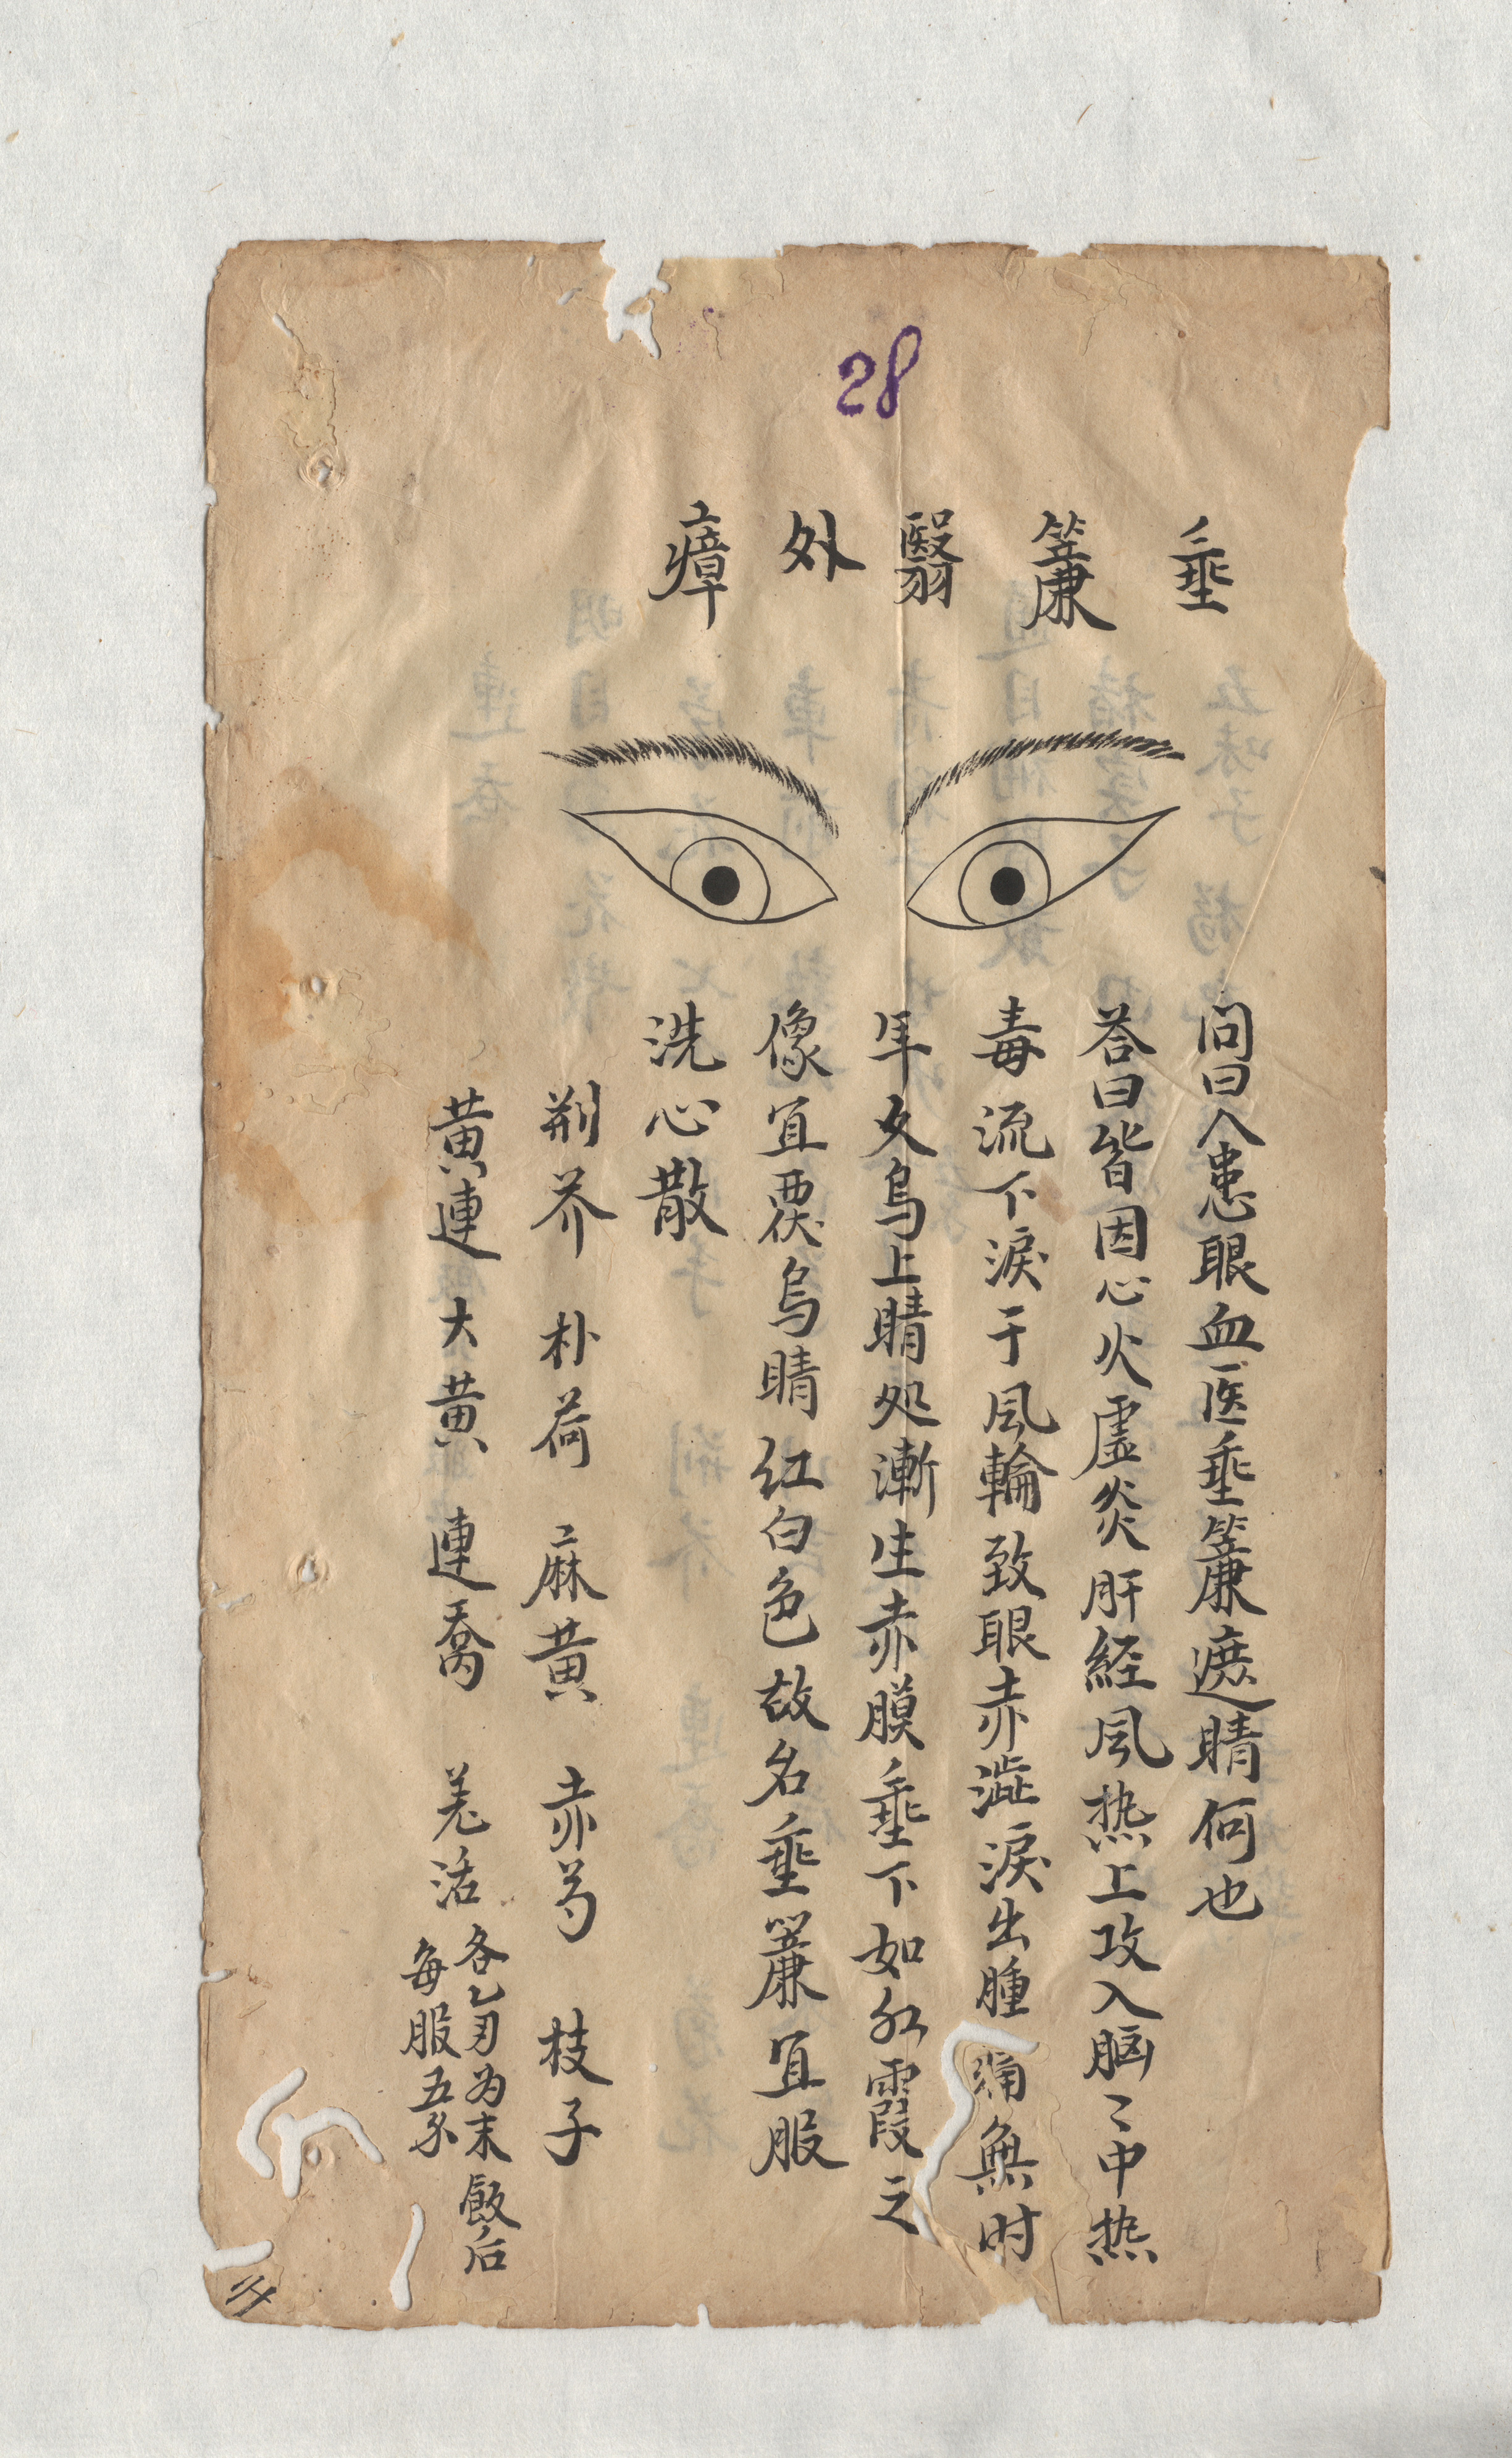 28
垂簾翳外瘴
問曰人患眼血医垂簾遮睛何也
荅曰皆因心火虛炎肝経風热上攻入脳〻中热
毒流下淚于風輪致眼赤澁淚出腫痛無时
年久烏上睛处漸生赤膜垂下如红霞之
像宜覆烏睛红白色故名垂簾宜服
洗心散
荆芥 朴荷 麻黄 赤芍 枝子
黄連 大黄 連喬 羌活
各乙为末飯后
每服五